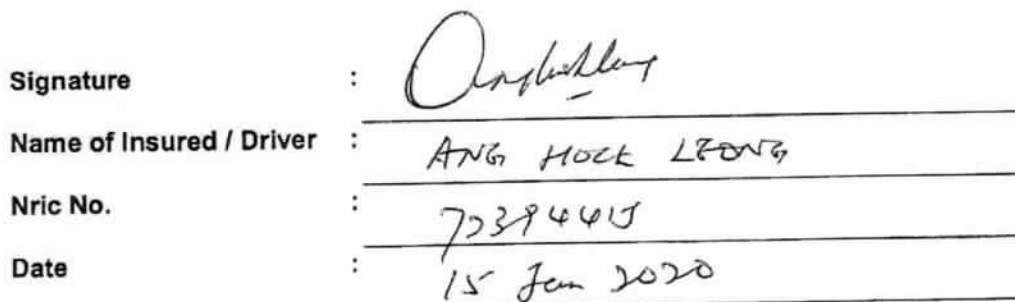 Signature :
Name of Insured / Driver : ANG HOCK LEONG
Nric No. :
Date : 15 Jan 2020